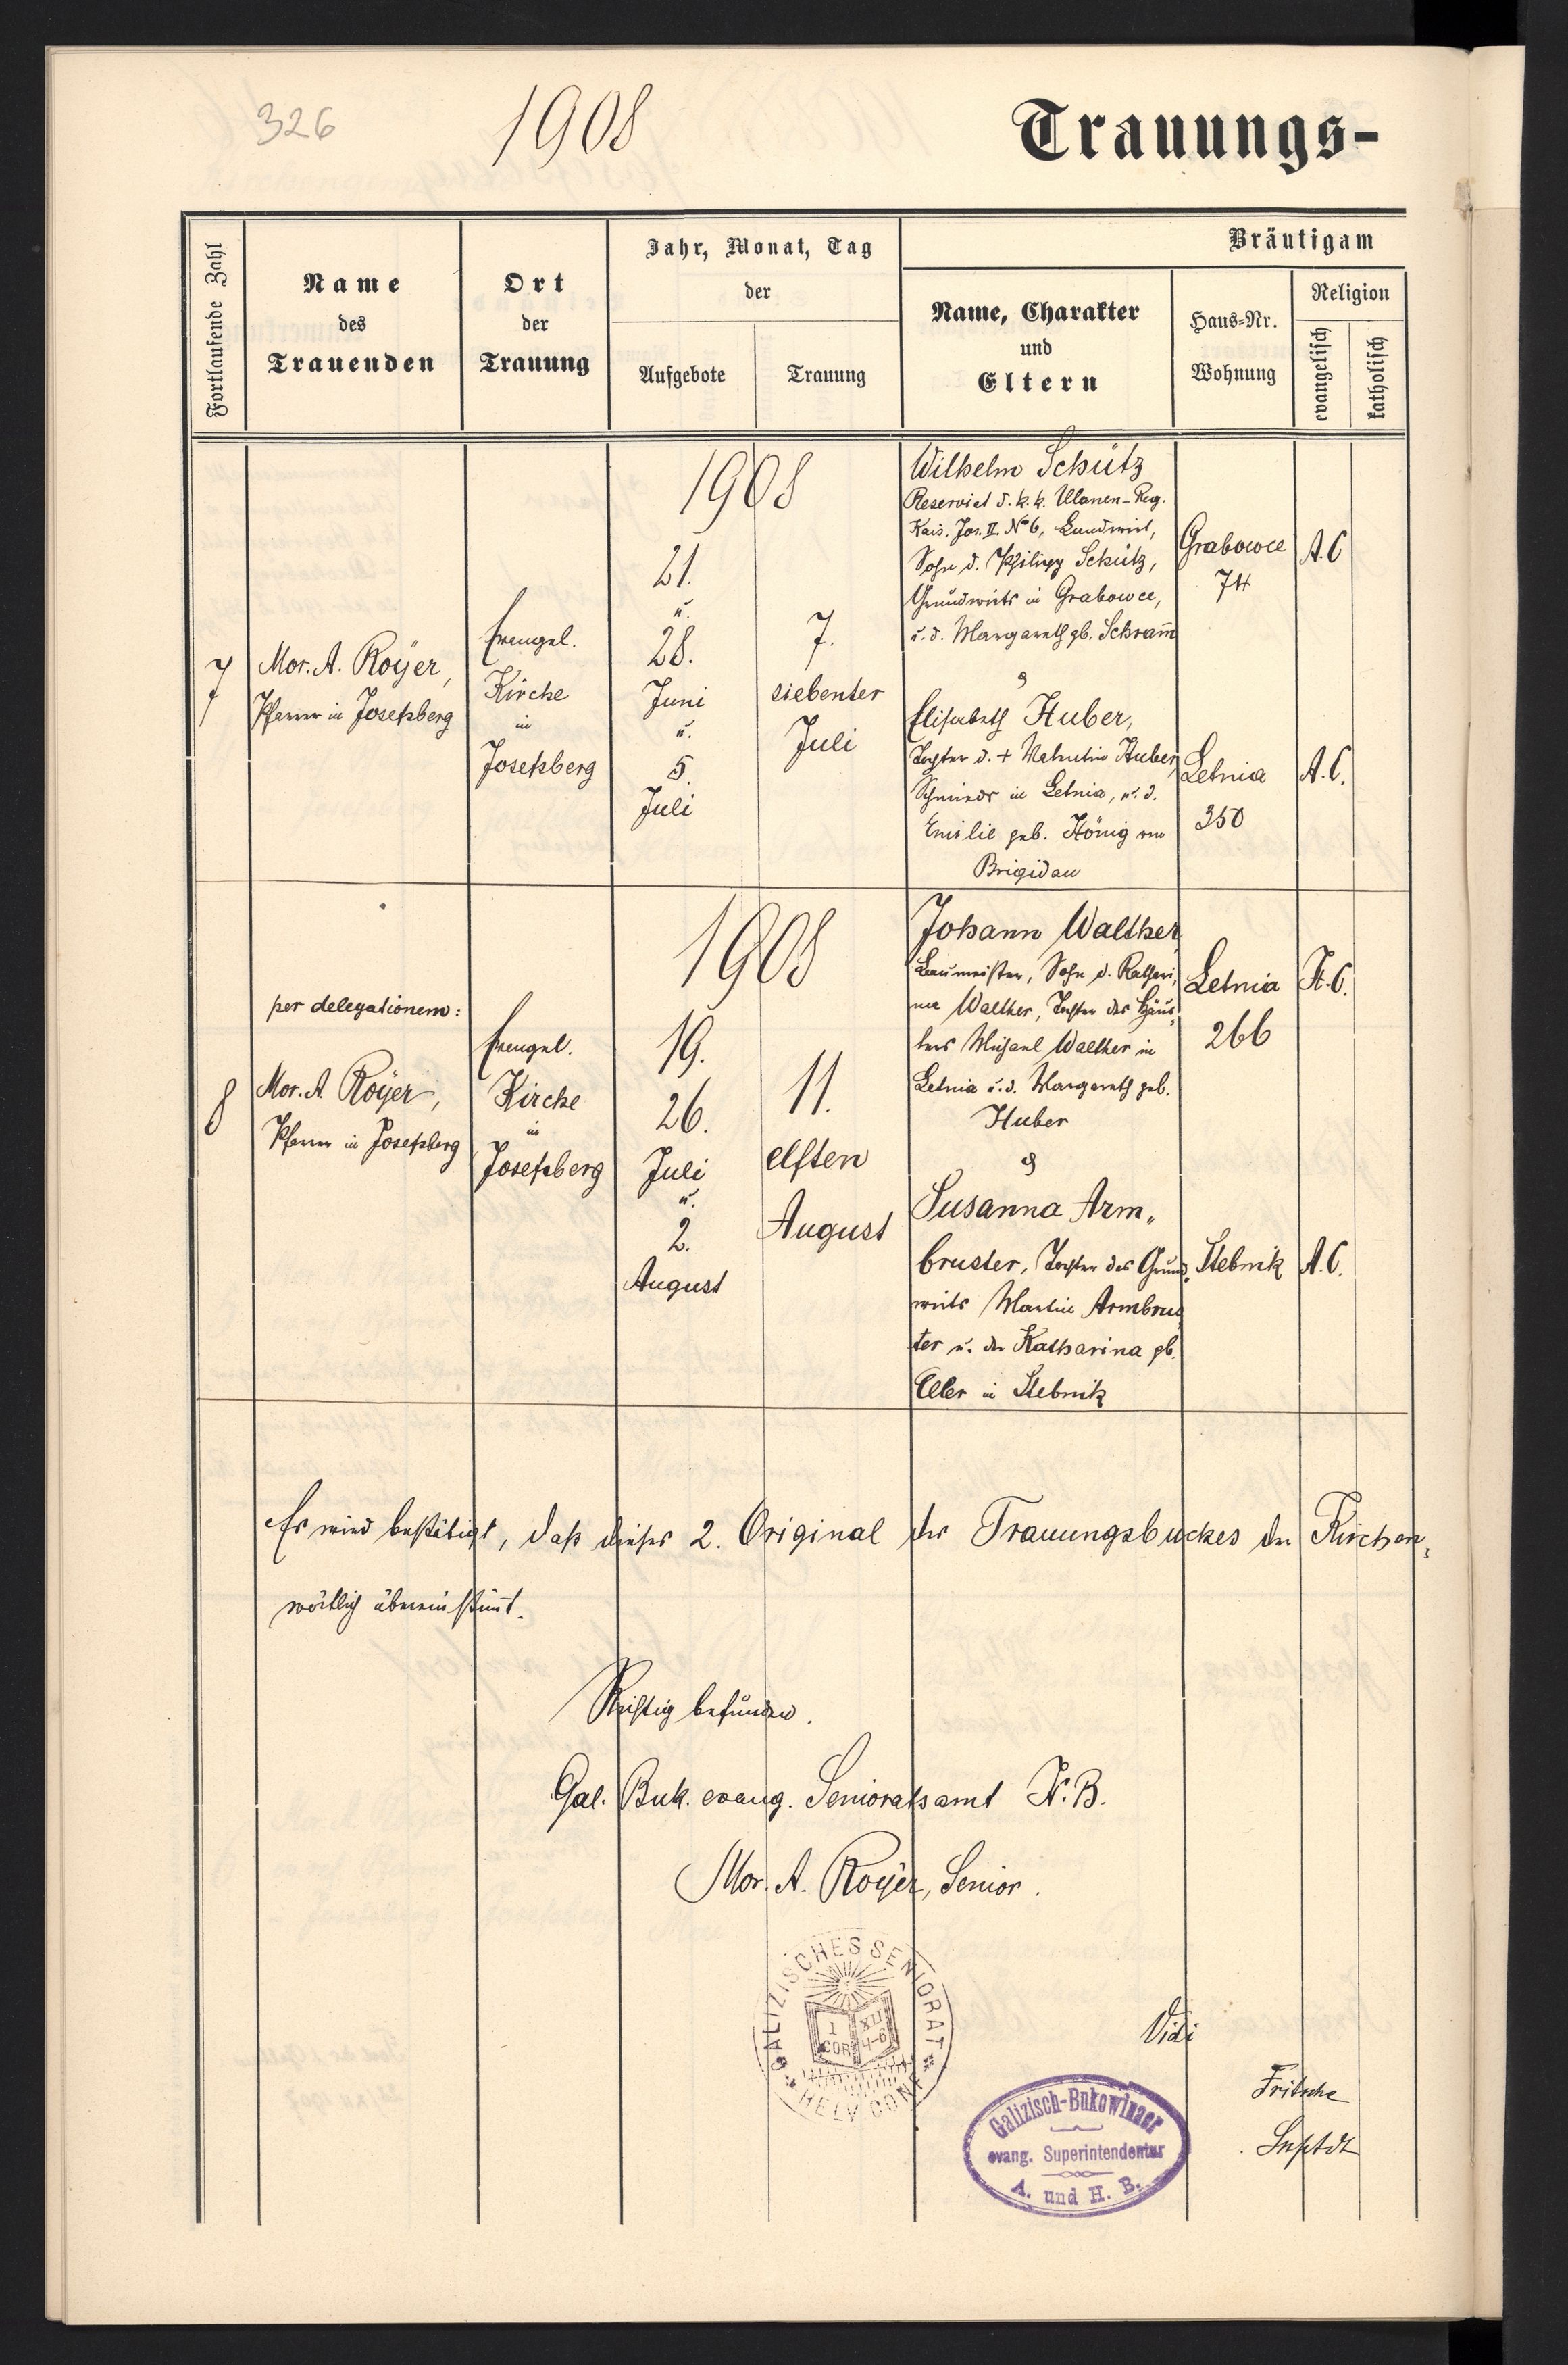 326
1908
Trauungs-
Fortlaufende Zahl
Name
des
Trauenden
Ort
der
Trauung
Jahr, Monat, Tag
der
Aufgebote
Trauung
Bräutigam
Name, Charakter
und
Eltern
Haus-Nr.
Wohnung
Religion
evangelisch
katholisch
7
Mor. A. Royer,
Pfarrer in Josefsberg
Evangel.
Kirche
in
Josefsberg
1908
21.
u.
28.
Juni
u.
5.
Juli
7.
siebenter
Juli
Wilhelm Schütz
Reservist d. k. k. Ulanen-Reg.
Kais. Jos. II. No 6, Landwirt,
Sohn d. Philipp Schütz,
Grundwirts in Grabowce,
u. d. Margareth gb. Schram̅
&
Elisabeth Huber,
Tochter d. + Valentin Huber,
Schmieds in Letnia, u. d.
Emilie geb. König von
Brigidau
Grabowce
74
A. C
Letnia
350
A. C.
8
per delegationem:
Mor. A. Royer,
Pfarrer in Josefsberg
Evangel.
Kirche
in
Josefsberg
1908
19.
26.
Juli
u.
2.
August
11.
elften
August
Johann Walther,
Baumeister, Sohn d. Kathari„
na Walther, Tochter des Häus„
lers Michael Walther in
Letnia u. d. Margareth geb.
Huber
&
Susanna Arm„
bruster, Tochter des Grund„
wirts Martin Armbrus„
ter u. der Katharina gb.
Eller in Stebnik
Letnia
266
H. C.
Stebnik
A. C.
Es wird bestätigt, daß dieses 2. Original des Trauungsbuches der Kirchen„
wörtlich übereinstim̅t.
Richtig befunden.
Gal. Buk. evang. Senioratsamt H. B.
Mor. A. Royer, Senior.
GALIZISCHES SENIORAT
HELV. CONF.
I COR XII 4-6
Vidi
Fritsche
Suptdt
Galizisch-Bukowinaer
evang. Superintendentur
A. und H. B.